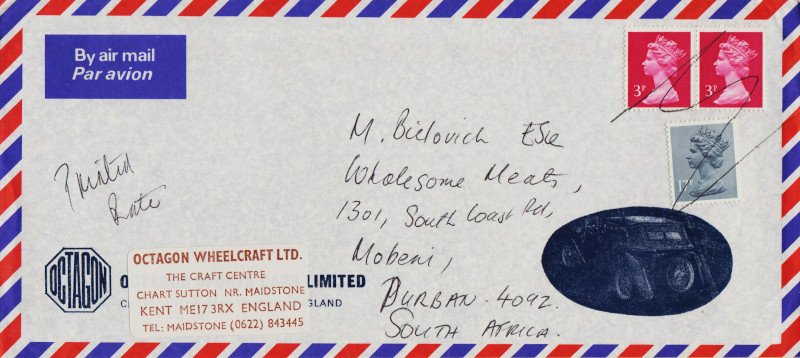 By air mail
Par avion
3P
3P
M. Bielovich Esq
Wholesome Meats,
1301, South Coast Rd,
Mobeni,
DURBAN. 4092.
SOUTH AFRICA.
Printed
Rate
OCTAGON
LIMITED
GLAND
OCTAGON WHEELCRAFT LTD.
THE CRAFT CENTRE
CHART SUTTON NR. MAIDSTONE
KENT ME17 3RX ENGLAND
TEL: MAIDSTONE (0622) 843445